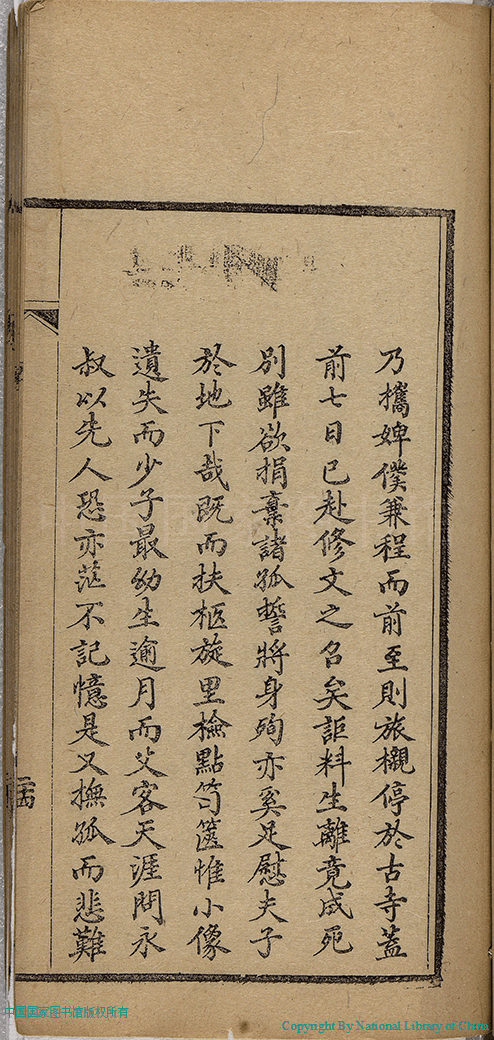 乃攜婢僕兼程而前至則旅櫬停於古寺蓋
前七日已赴修文之召矣詎料生離竟成死
別雖欲捐棄諸孤誓將身殉亦奚足慰夫子
於地下哉既而扶柩旋里檢點笥篋惟小像
遺失而少子最幼生逾月而父客天涯問永
叔以先人恐亦茫不記憶是又撫孤而悲難
中国国家图书馆版权所有
Copyright By National Library of China